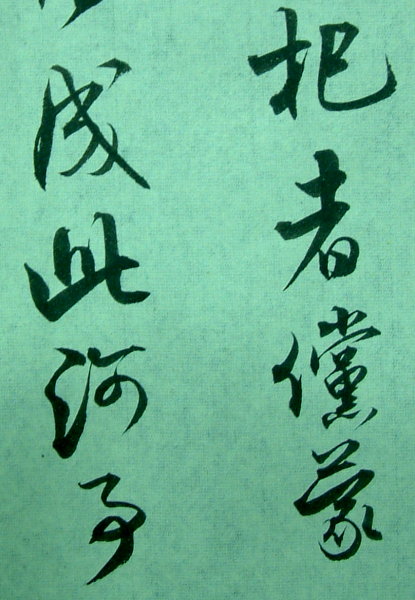 把者儻蒙
成此河事